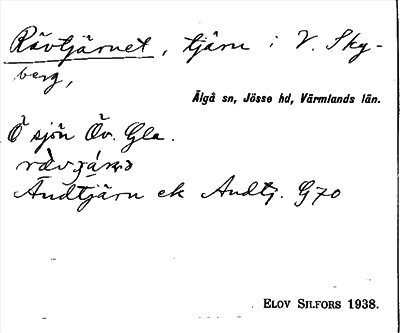 Rävtjärnet, tjärn i V. Sky-
berg,
Älgå sn, Jösse hd, Värmlands län.
Ö sjön Öv. Gla.
Åndtjärn ek Andtj. G70
ELOV SILFORS 1938.